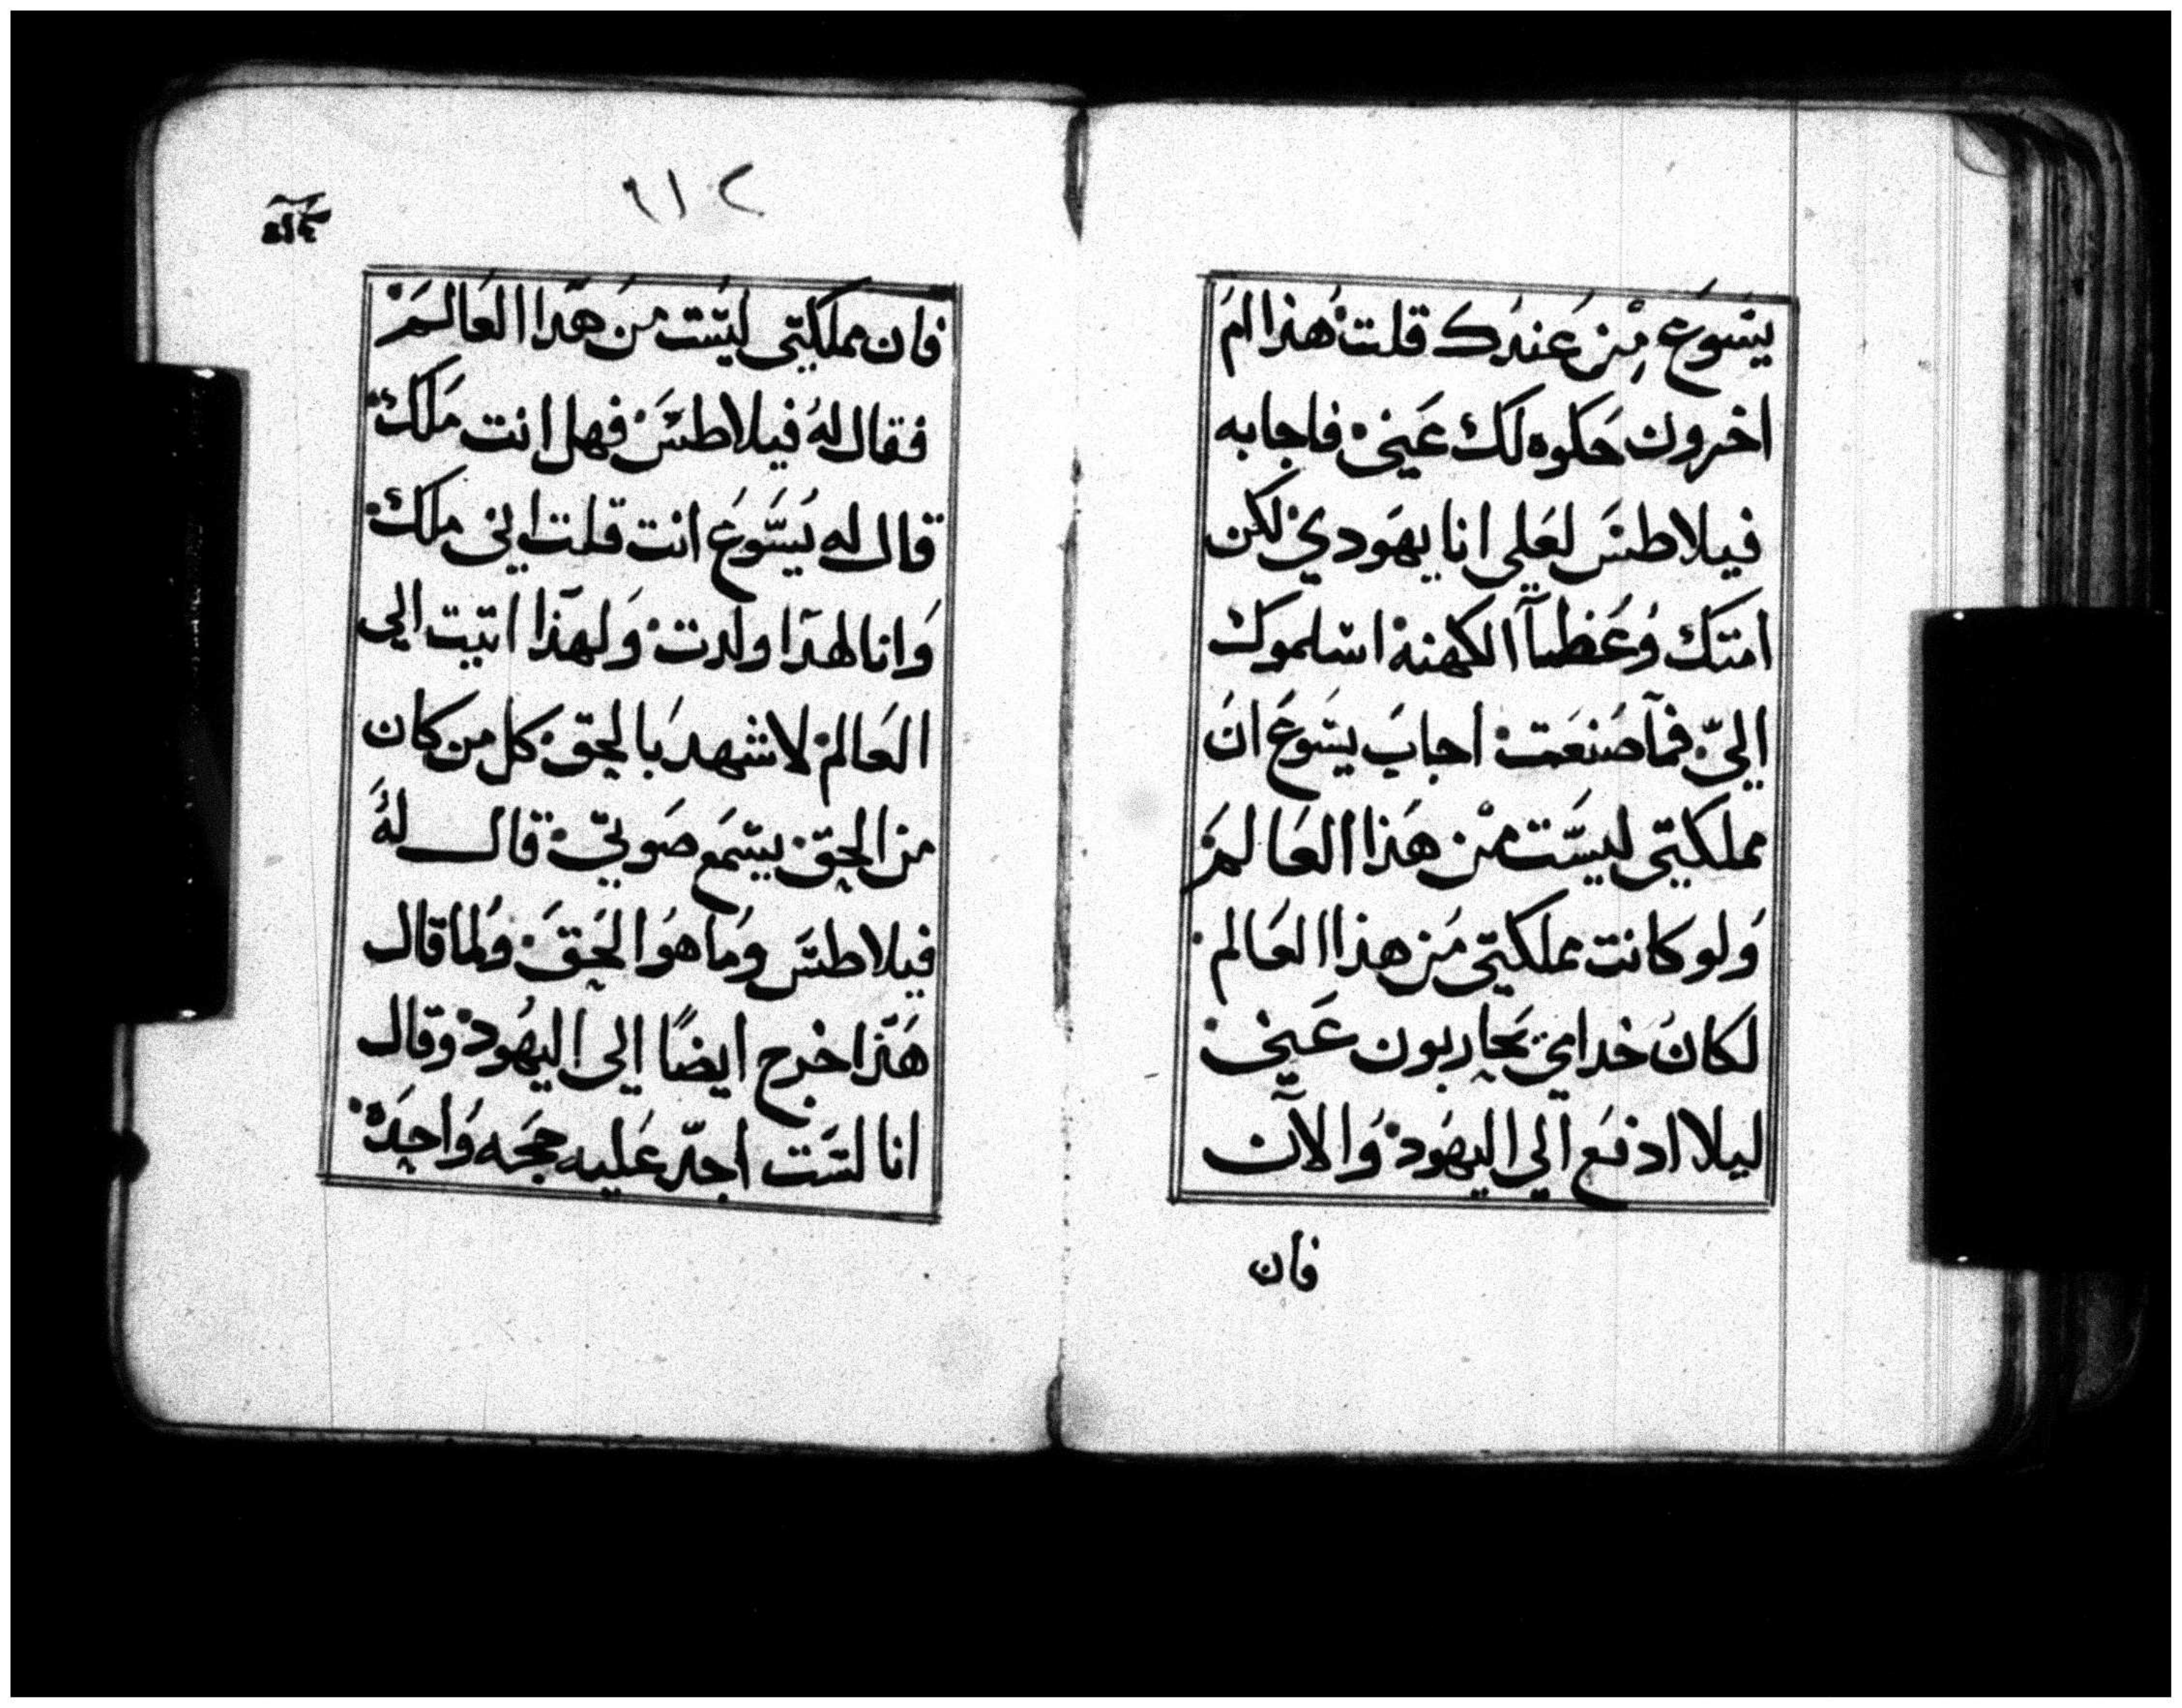 يسَوعَ مِنْ عَندَك قلت هذا امَ
اخرون حَكوه لك عَيني فاجابه
فيلاطسَ لعَلي انا يهَودي لكن
امتَك وُعَظمآ الكهنه اسلموك
اليّ فمآ صَنعَت اجابَ يسَوعَ انَ
مملكتي ليسَّت مْن هَذا العَالمَ
وَلو كانت مملكتي مَن هذا العَالم
لكانَ خدامي يحَاربون عَني
ليلا ادفع الي اليهَود وَالآن
فان
٢١٦
فان مملكتي ليسَت منَ هَذا العَالمَ
فقال لهُ فيلاطسَ فهل انت مَلك
قال له يُسَّوعَ انت قلت اني ملك
وَانا لهذَا ولدت وَلهذَا اتيت الي
العَالم لاشهد بَالحق كل من كان
من الحق يسَمَع صَوتيّ قال لهُ
فيلاطسَ ومَا هوَ الحَقَ وَلما قال
هَذا خرج ايضًا الي اليهُود وقال
انا لسَت اجدّ عَليه حجَه وَاحِدَة